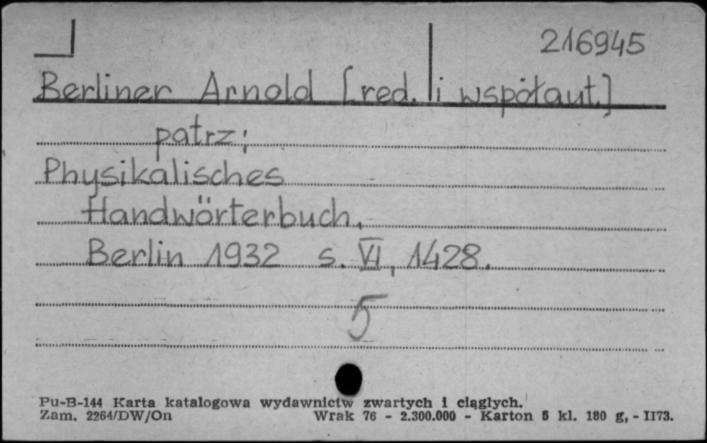 216945
Berliner Arnold [red. i współaut.]
patrz:
Physikalisches
Handwörterbuch.
Berlin 1932 s. VI, 1428.
5
Pu-B-144 Karta katalogowa wydawnictw zwartych i ciągłych.
Zam. 2264/DW/On Wrak 76 - 2.300.000 - Karton 5 kl. 180 g, - II73.